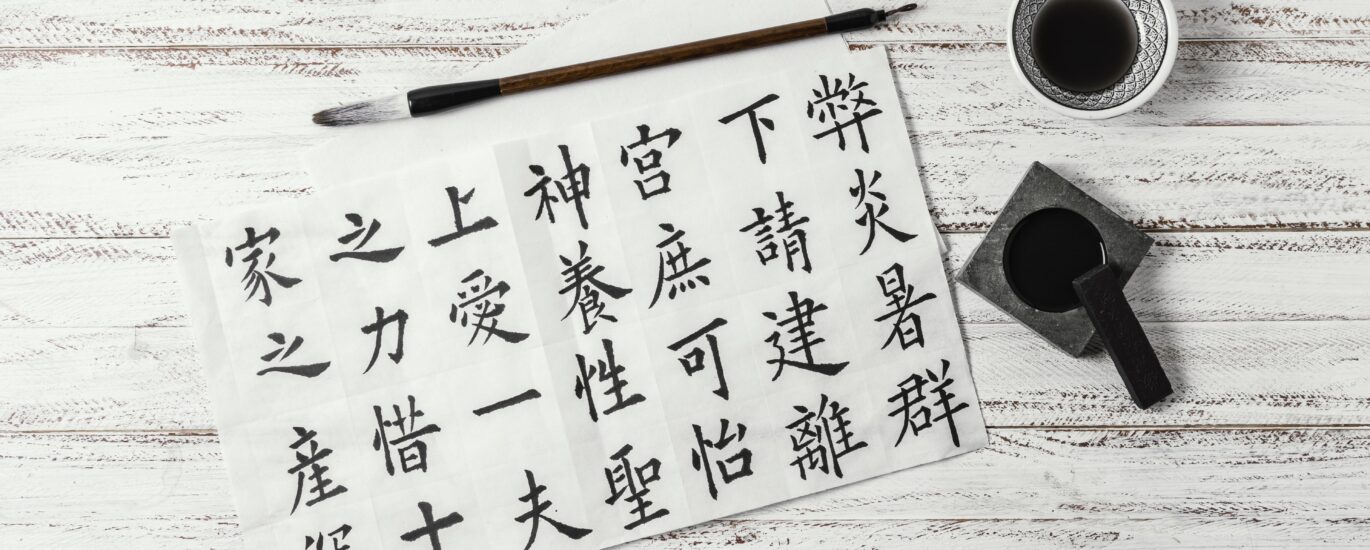 弊炎暑群
下請建離
宮庶可怡
神養性聖
上愛一夫
之力惜十
家之産